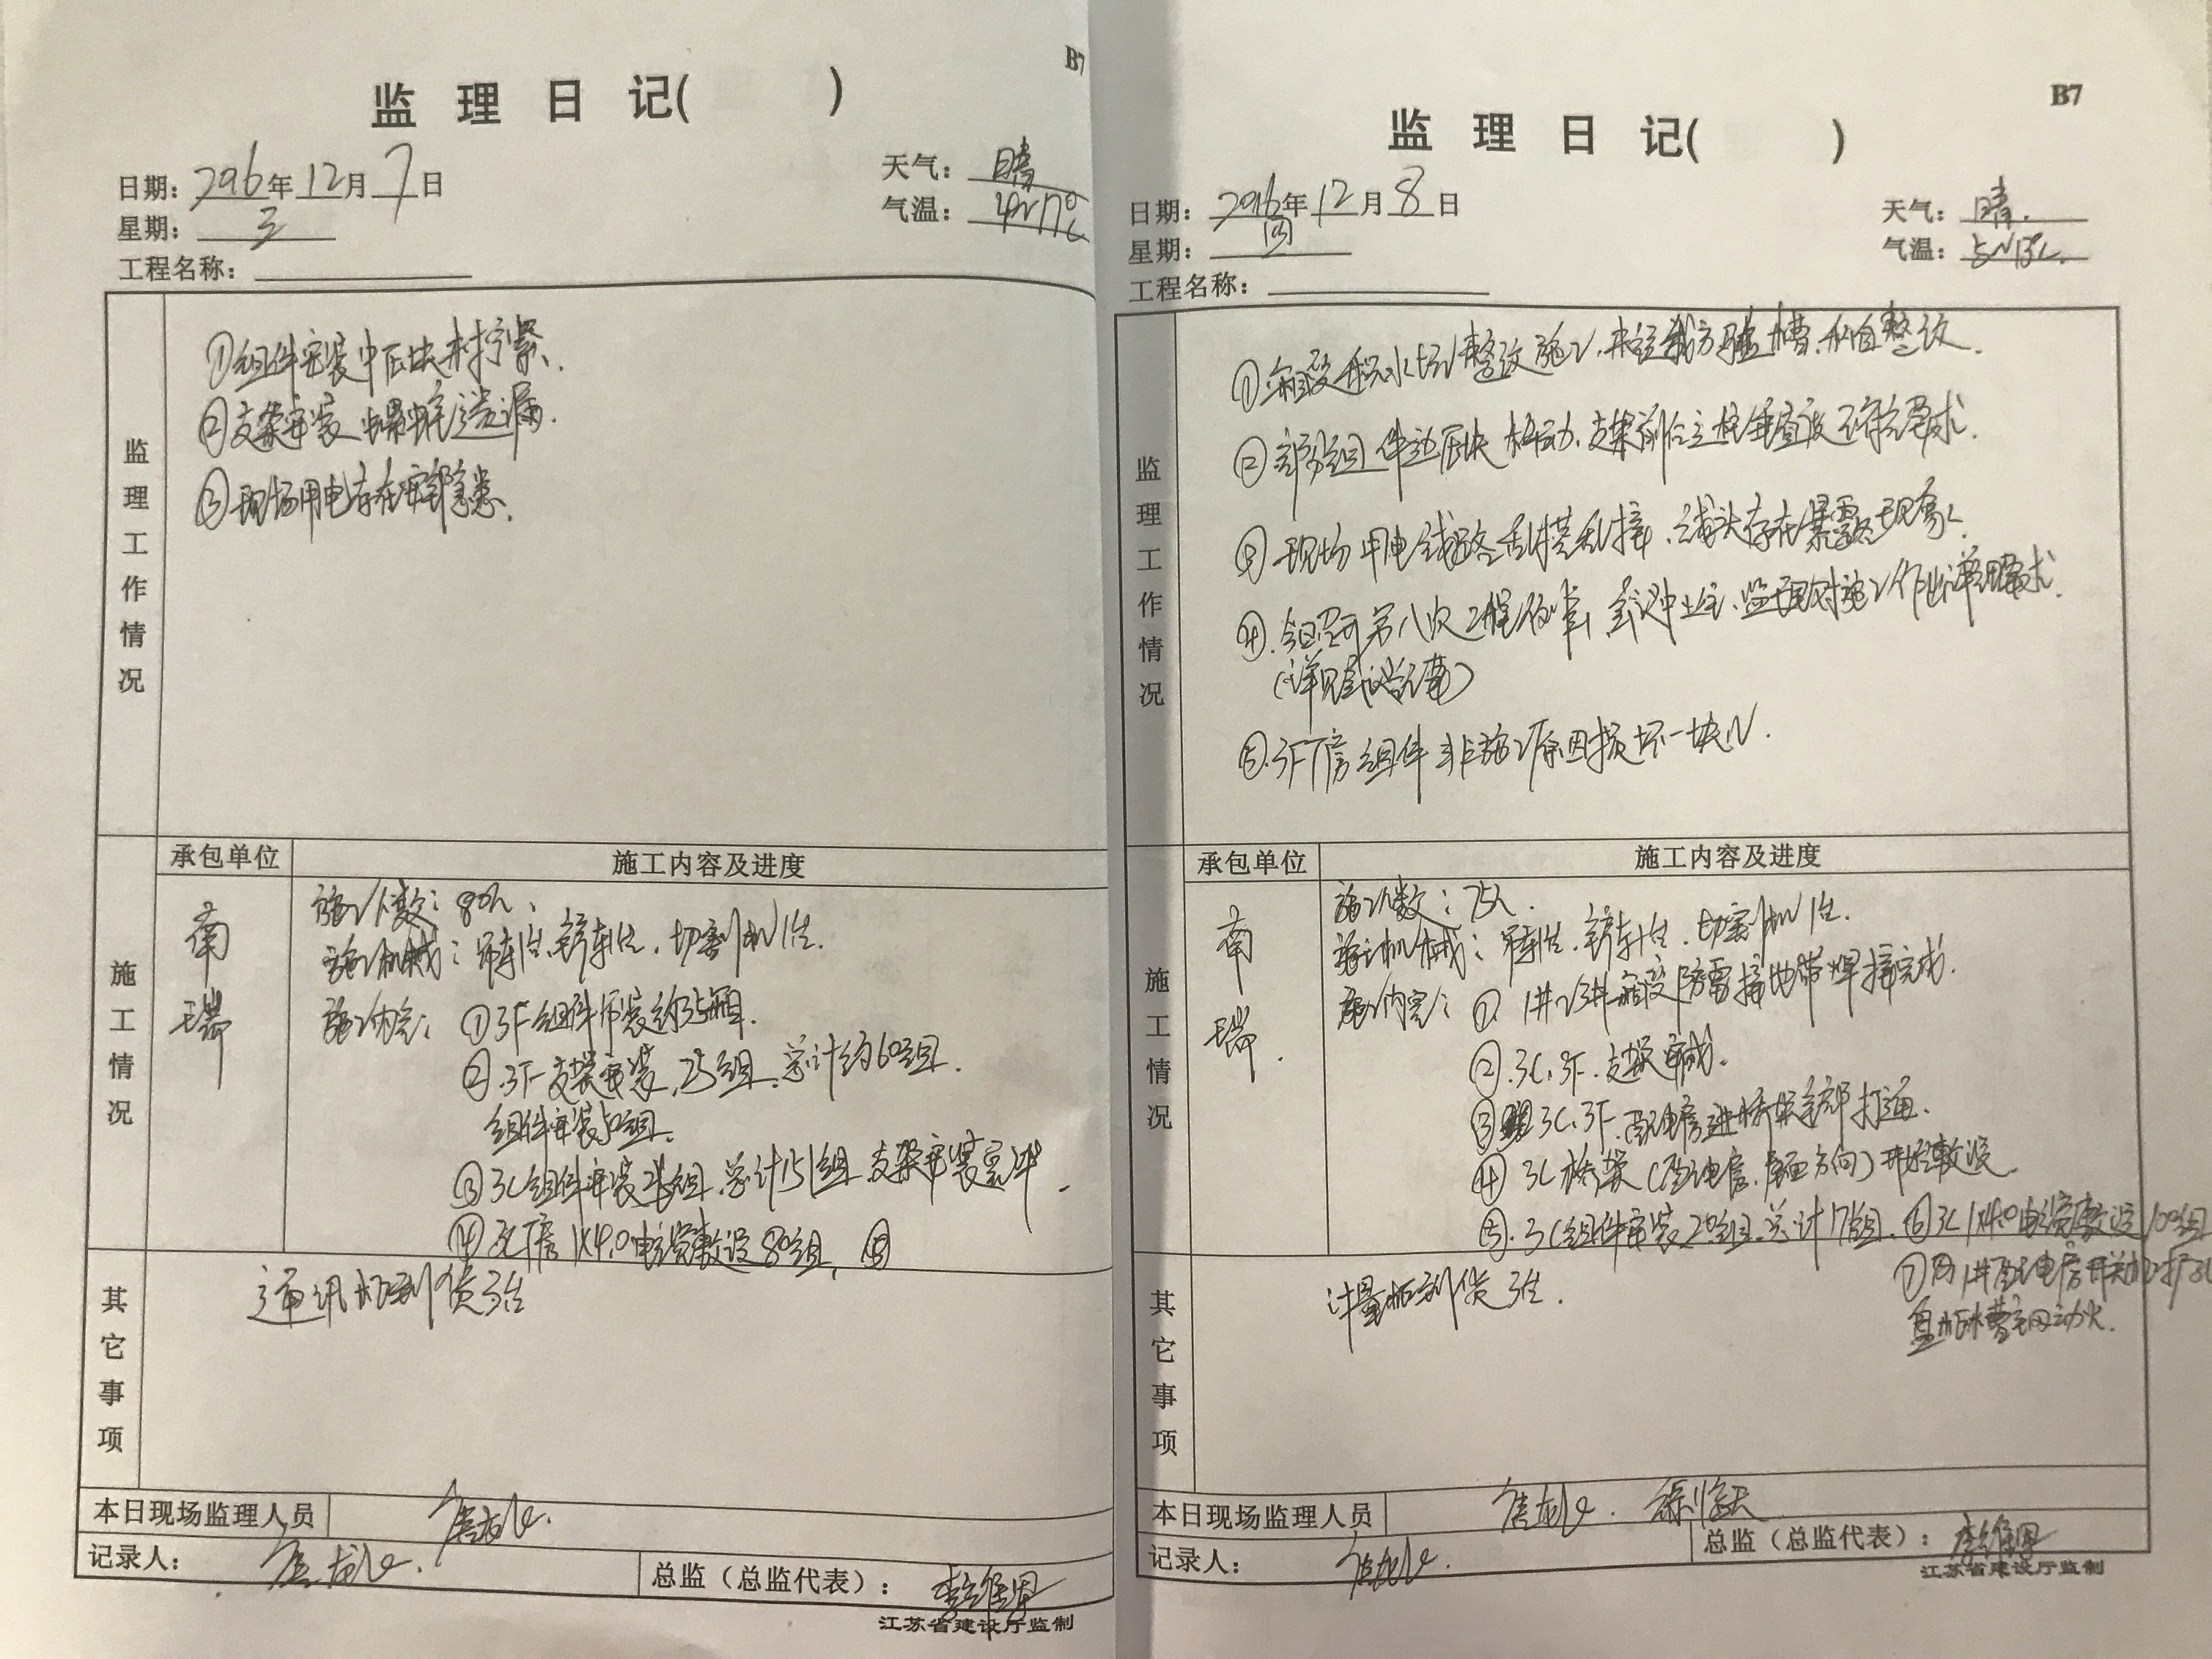 B7
监理日记( )
日期：2016年12月7日
天气：晴
星期：三
气温：4~17℃
工程名称：
监理工作情况
①组件安装中压块未拧紧.
②支架安装螺蛳遗漏.
③现场用电存在安全隐患.
承包单位
施工内容及进度
施工情况
南瑞
施工人数：80人、
施工机械：吊车1台、铲车1台、切割机1台.
施工内容：①3F组件吊装约35箱.
②.3F支架安装.25组.总计约60组.
组件安装50组.
③3C组件安装25组.总计151组.支架安装完毕.
④3C厂房1X4.0电缆敷设80组.
其它事项
通讯柜到货3台
本日现场监理人员
记录人：
总监（总监代表）：
江苏省建设厅监制
B7
监理日记( )
日期：2016年12月8日
天气：晴.
星期：四
气温：5~13℃.
工程名称：
监理工作情况
①箱变积水坑整改施工,未经我方验槽,私自整改.
②部分组件边压块松动.支架前后立柱垂直度不符合要求.
③现场用电线路乱搭乱接,线头存在暴露现象.
④.今日召开第八次工程例会,会议中业主、监理对施工作出详细要求.
(详见会议纪要)
⑤.3F厂房组件非施工原因损坏一块.
承包单位
施工内容及进度
施工情况
南瑞.
施工人数：75人.
施工机械：吊车1台.铲车1台.切割机1台.
施工内容：①.1#~3#箱变防雷接地带焊接完成.
②.3C、3F.支架完成.
③3C、3F.配电房进桥架全部打通.
④3C桥架(配电房.屋面方向)开始敷设.
⑤.3C组件安装20组.总计171组.⑥3C1X4.0电缆敷设100组
其它事项
计量柜到货3台.
本日现场监理人员
记录人：
总监（总监代表）：
江苏省建设厅监制